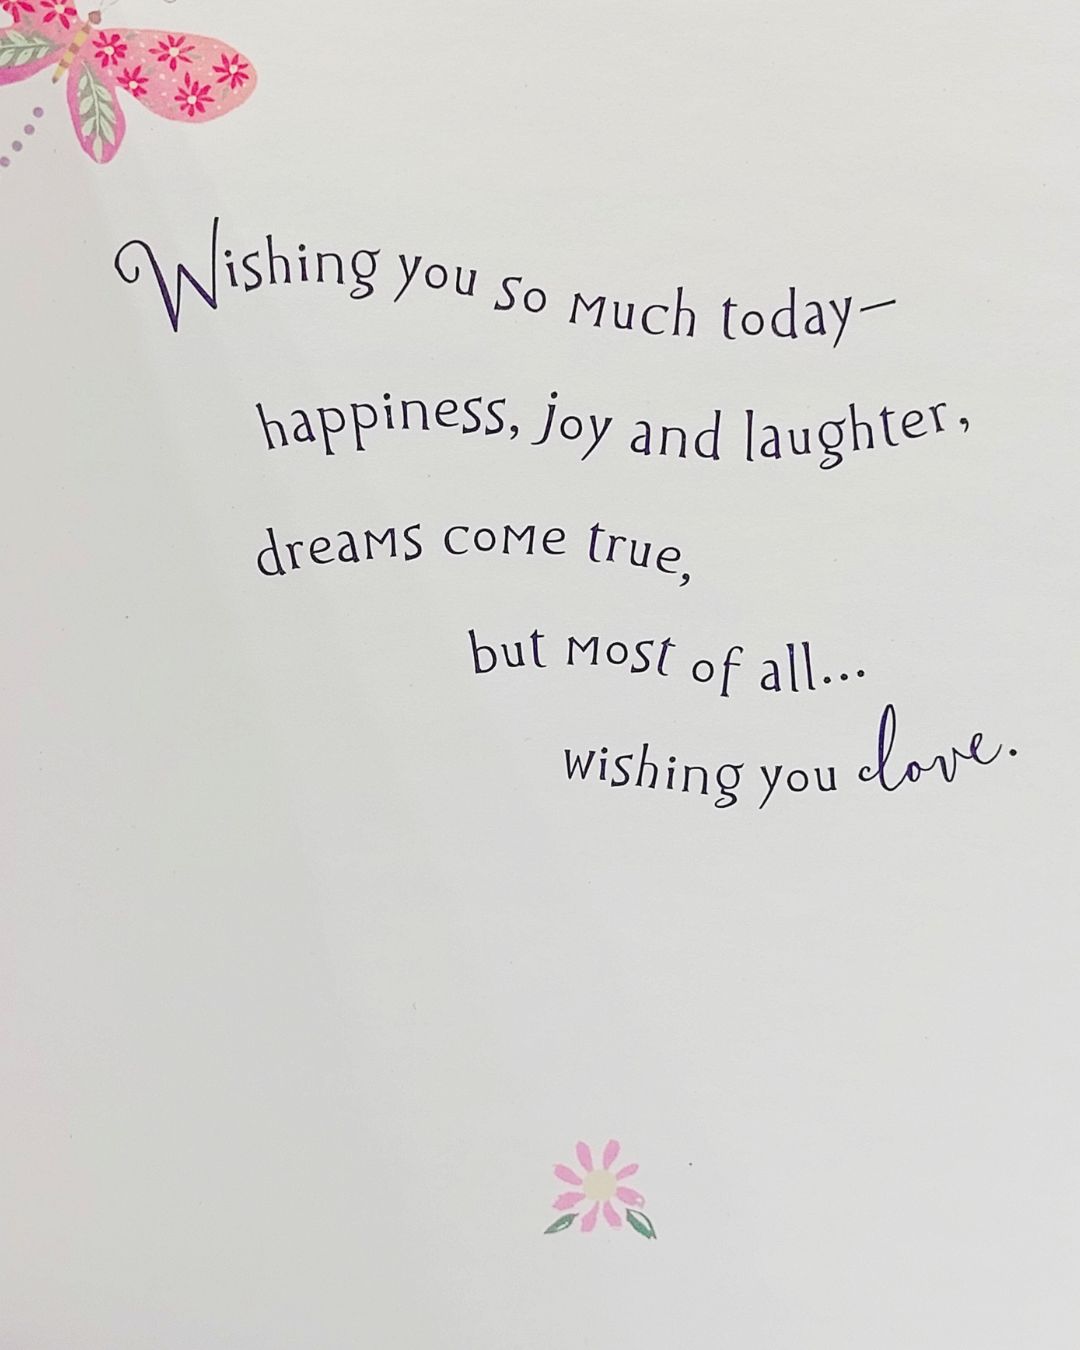 Wishing you so much today—
happiness, joy and laughter,
dreams come true,
but most of all...
wishing you love.